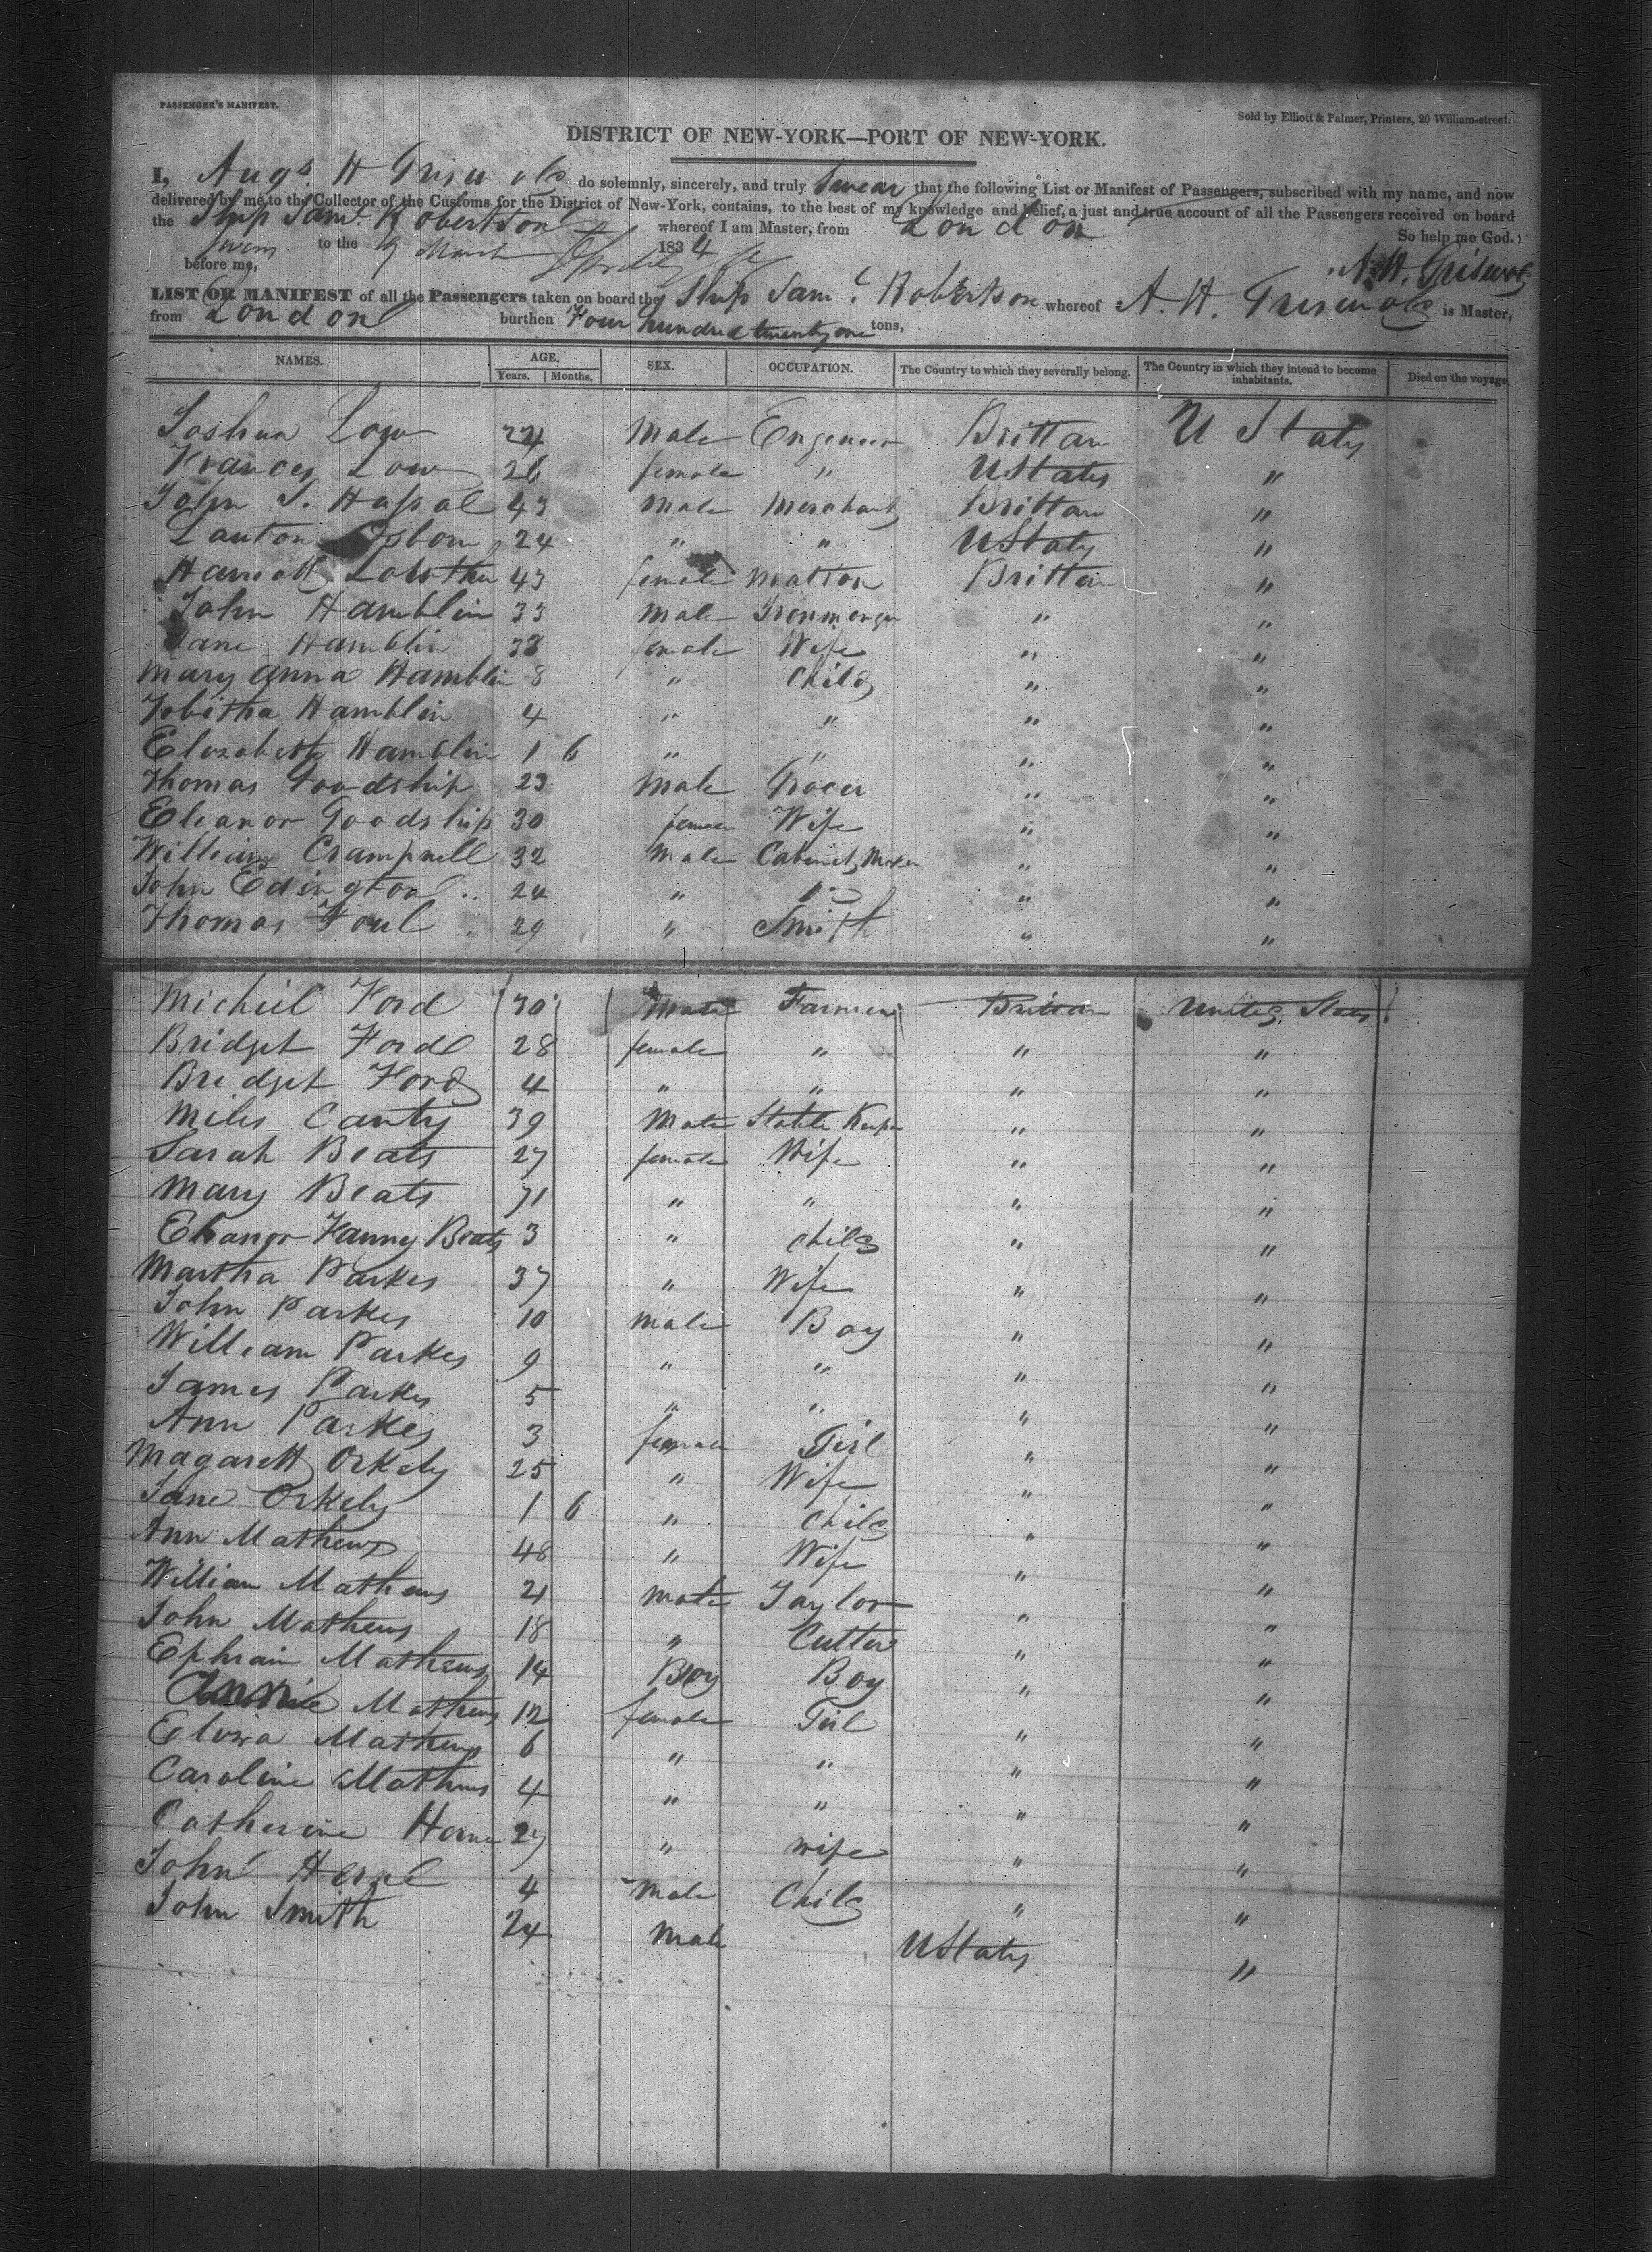 PASSENGER'S MANIFEST.
Sold by Elliott & Palmer, Printers, 20 William-street.
DISTRICT OF NEW-YORK—PORT OF NEW-YORK.
I, Augs. H Griswold do solemnly, sincerely, and truly Swear that the following List or Manifest of Passengers, subscribed with my name, and now
delivered by me to the Collector of the Customs for the District of New-York, contains, to the best of my knowledge and belief, a just and true account of all the Passengers received on board
the Ship Saml. Robertson whereof I am Master, from London
So help me God.
Sworn to the 19 March 1834
before me,
A. H. Griswold
LIST OR MANIFEST of all the Passengers taken on board the Ship Saml. Robertson whereof A. H. Griswold is Master,
from London burthen Four hundred twenty one tons,
NAMES. AGE. SEX. OCCUPATION. The Country to which they severally belong. The Country in which they intend to become inhabitants. Died on the voyage.
Years. Months.
Joshua Low 24 Male Engeneer Brittan U States
Frances Low 26 female " U States "
John S. Hassal 43 Male Merchant Brittan "
Lauton Osborn 24 " " U States "
Harriott Lowther 43 female Matron Brittain "
John Hamblin 33 Male Ironmonger " "
Jane Hamblin 38 female Wife " "
Mary Anna Hamblin 8 " Child " "
Tobitha Hamblin 4 " " " "
Elizabeth Hamblin 1 6 " " " "
Thomas Goodship 23 Male Grocer " "
Eleanor Goodship 30 female Wife " "
William Crampnell 32 Male Cabinet Maker " "
John Edington 24 " Do " "
Thomas Foul 29 " Smith " "
Michiel Ford 30 Male Farmer Brittan United States
Bridget Ford 28 female " " "
Bridget Ford 4 " " " "
Miles Canty 39 Male Stable Keeper " "
Sarah Beats 27 female Wife " "
Mary Beats 71 " " " "
Eleanor Fanny Beats 3 " Child " "
Martha Parkes 37 " Wife " "
John Parkes 10 Male Boy " "
William Parkes 9 " " " "
James Parkes 5 " " " "
Ann Parkes 3 female Girl " "
Magarett Orkely 25 " Wife " "
Jane Orkely 1 6 " Child " "
Ann Mathews 48 " Wife " "
William Mathews 21 Male Taylor " "
John Mathews 18 " Cutter " "
Ephraim Mathews 14 Boy Boy " "
Annie Mathews 12 female Girl " "
Eloza Mathews 6 " " " "
Caroline Mathews 4 " " " "
Catherine Horne 27 " wife " "
John Horne 4 Male Child " "
John Smith 24 Male U States "